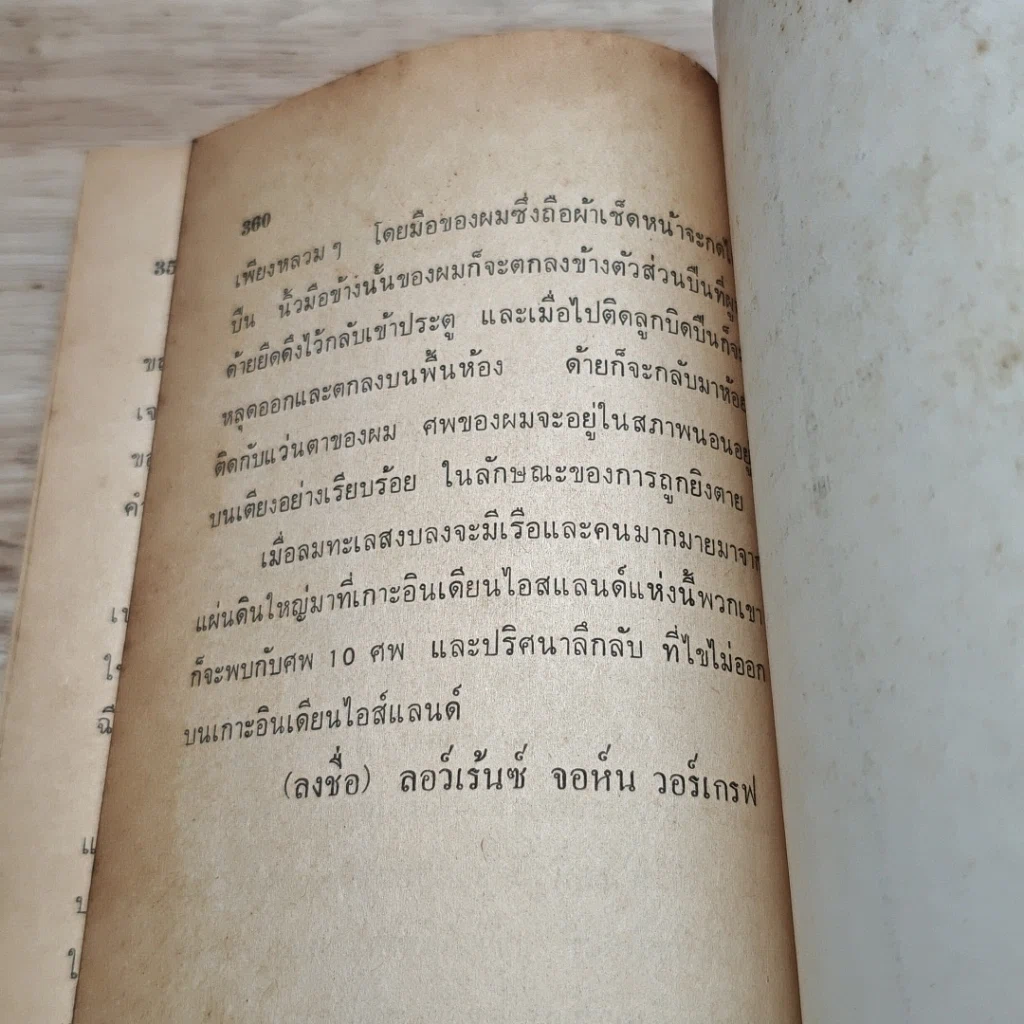 360
เพียงหลวมๆ โดยมือของผมซึ่งถือผ้าเช็ดหน้าจะกด
ปืน นิ้วมือข้างนั้นของผมก็จะตกลงข้างตัวส่วนปืนที่ผูก
ด้ายยืดดึงไว้กลับเข้าประตู และเมื่อไปติดลูกบิดปืนก็จะ
หลุดออกและตกลงบนพื้นห้อง ด้ายก็จะกลับมาห้อย
ติดกับแว่นตาของผม ศพของผมจะอยู่ในสภาพนอนอยู่
บนเตียงอย่างเรียบร้อย ในลักษณะของการถูกยิงตาย
เมื่อลมทะเลสงบลงจะมีเรือและคนมากมายมาจาก
แผ่นดินใหญ่มาที่เกาะอินเดียนไอสแลนด์แห่งนี้พวกเขา
ก็จะพบกับศพ 10 ศพ และปริศนาลึกลับ ที่ไขไม่ออก
บนเกาะอินเดียนไอส์แลนด์
(ลงชื่อ) ลอว์เร้นซ์ จอห์น วอร์เกรฟ